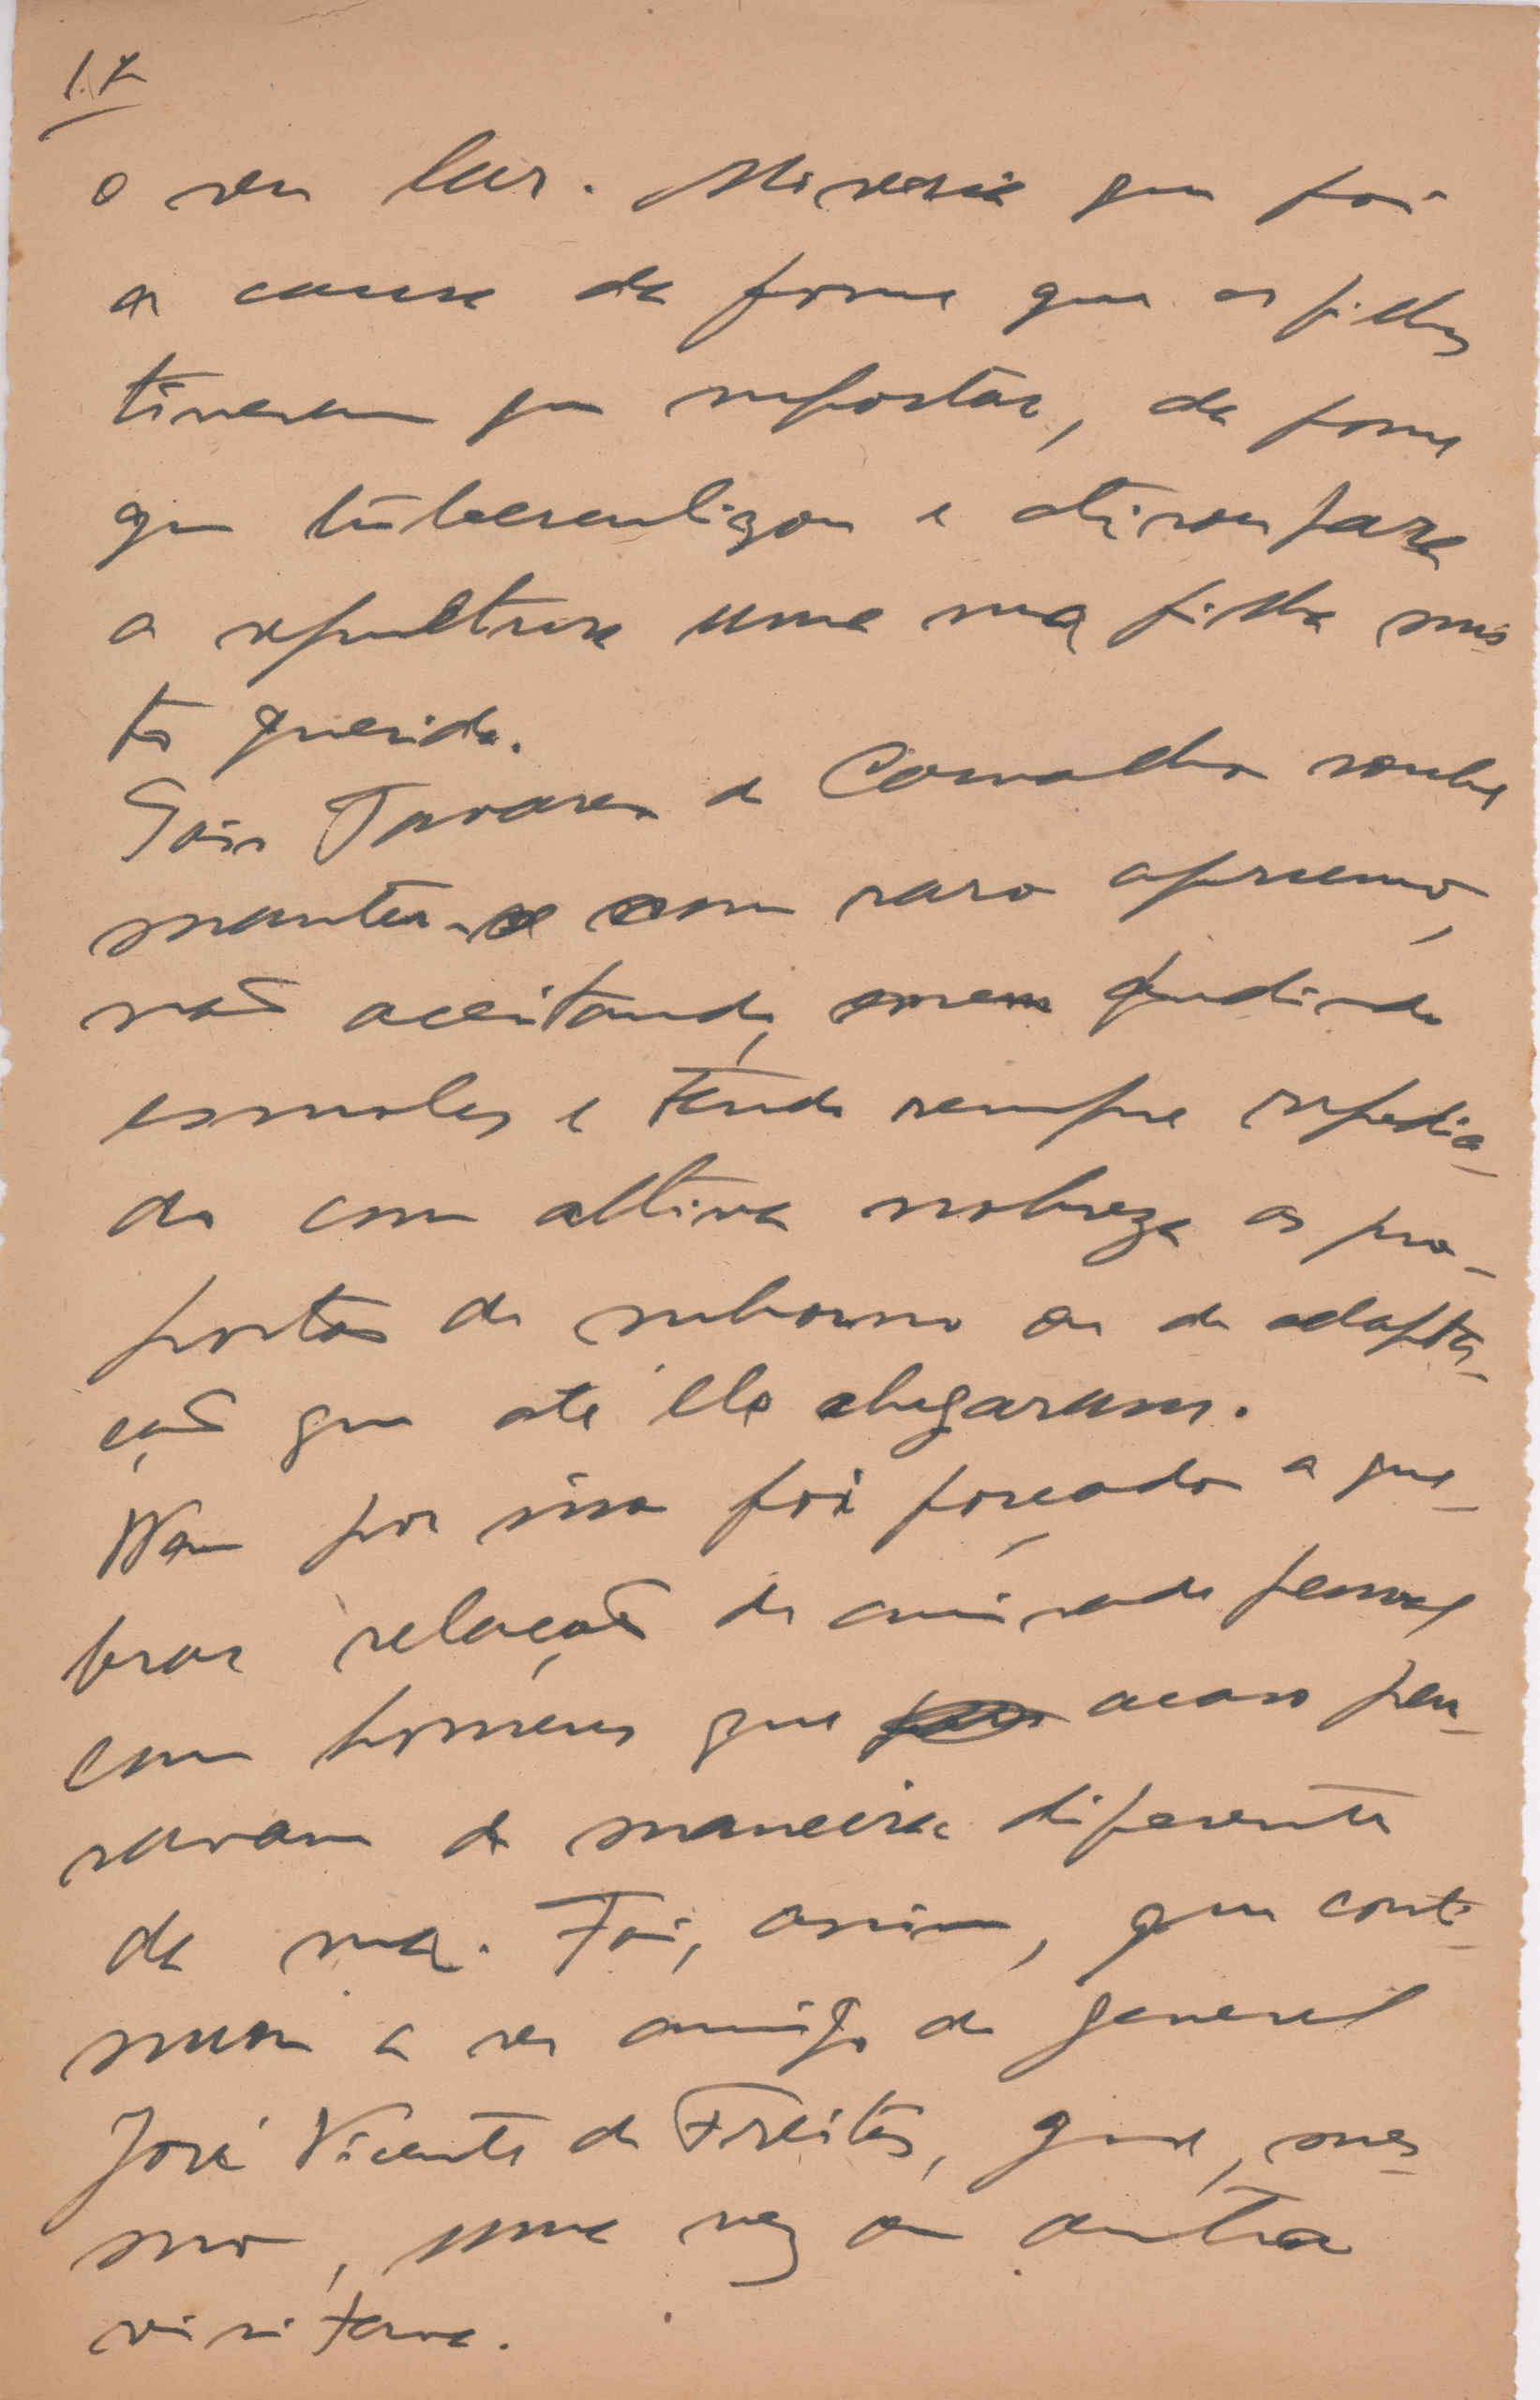 17
o seu lar. Miseria que foi
a causa da fome que os filhos
tiveram que suportar, da fome
que tuberculizou e atirou para
a sepultura uma sua filha mui-
to querida.
Tavares de Carvalho soube
manter-se com raro aprumo,
não aceitando, nem pedindo
esmolas e tendo sempre repudia-
do com altiva nobreza as pro-
postas de suborno ou de adapta-
ção que até ele chegaram.
Nem por isso foi forçado a que-
brar relação de amisade pessoal
com homens que acaso pen-
savam de maneira diferente
da sua. Foi, assim, que conti-
nuou a ser amigo do general
José Vicente de Freitas, que, mes-
mo, uma vez ou outra
visitava.